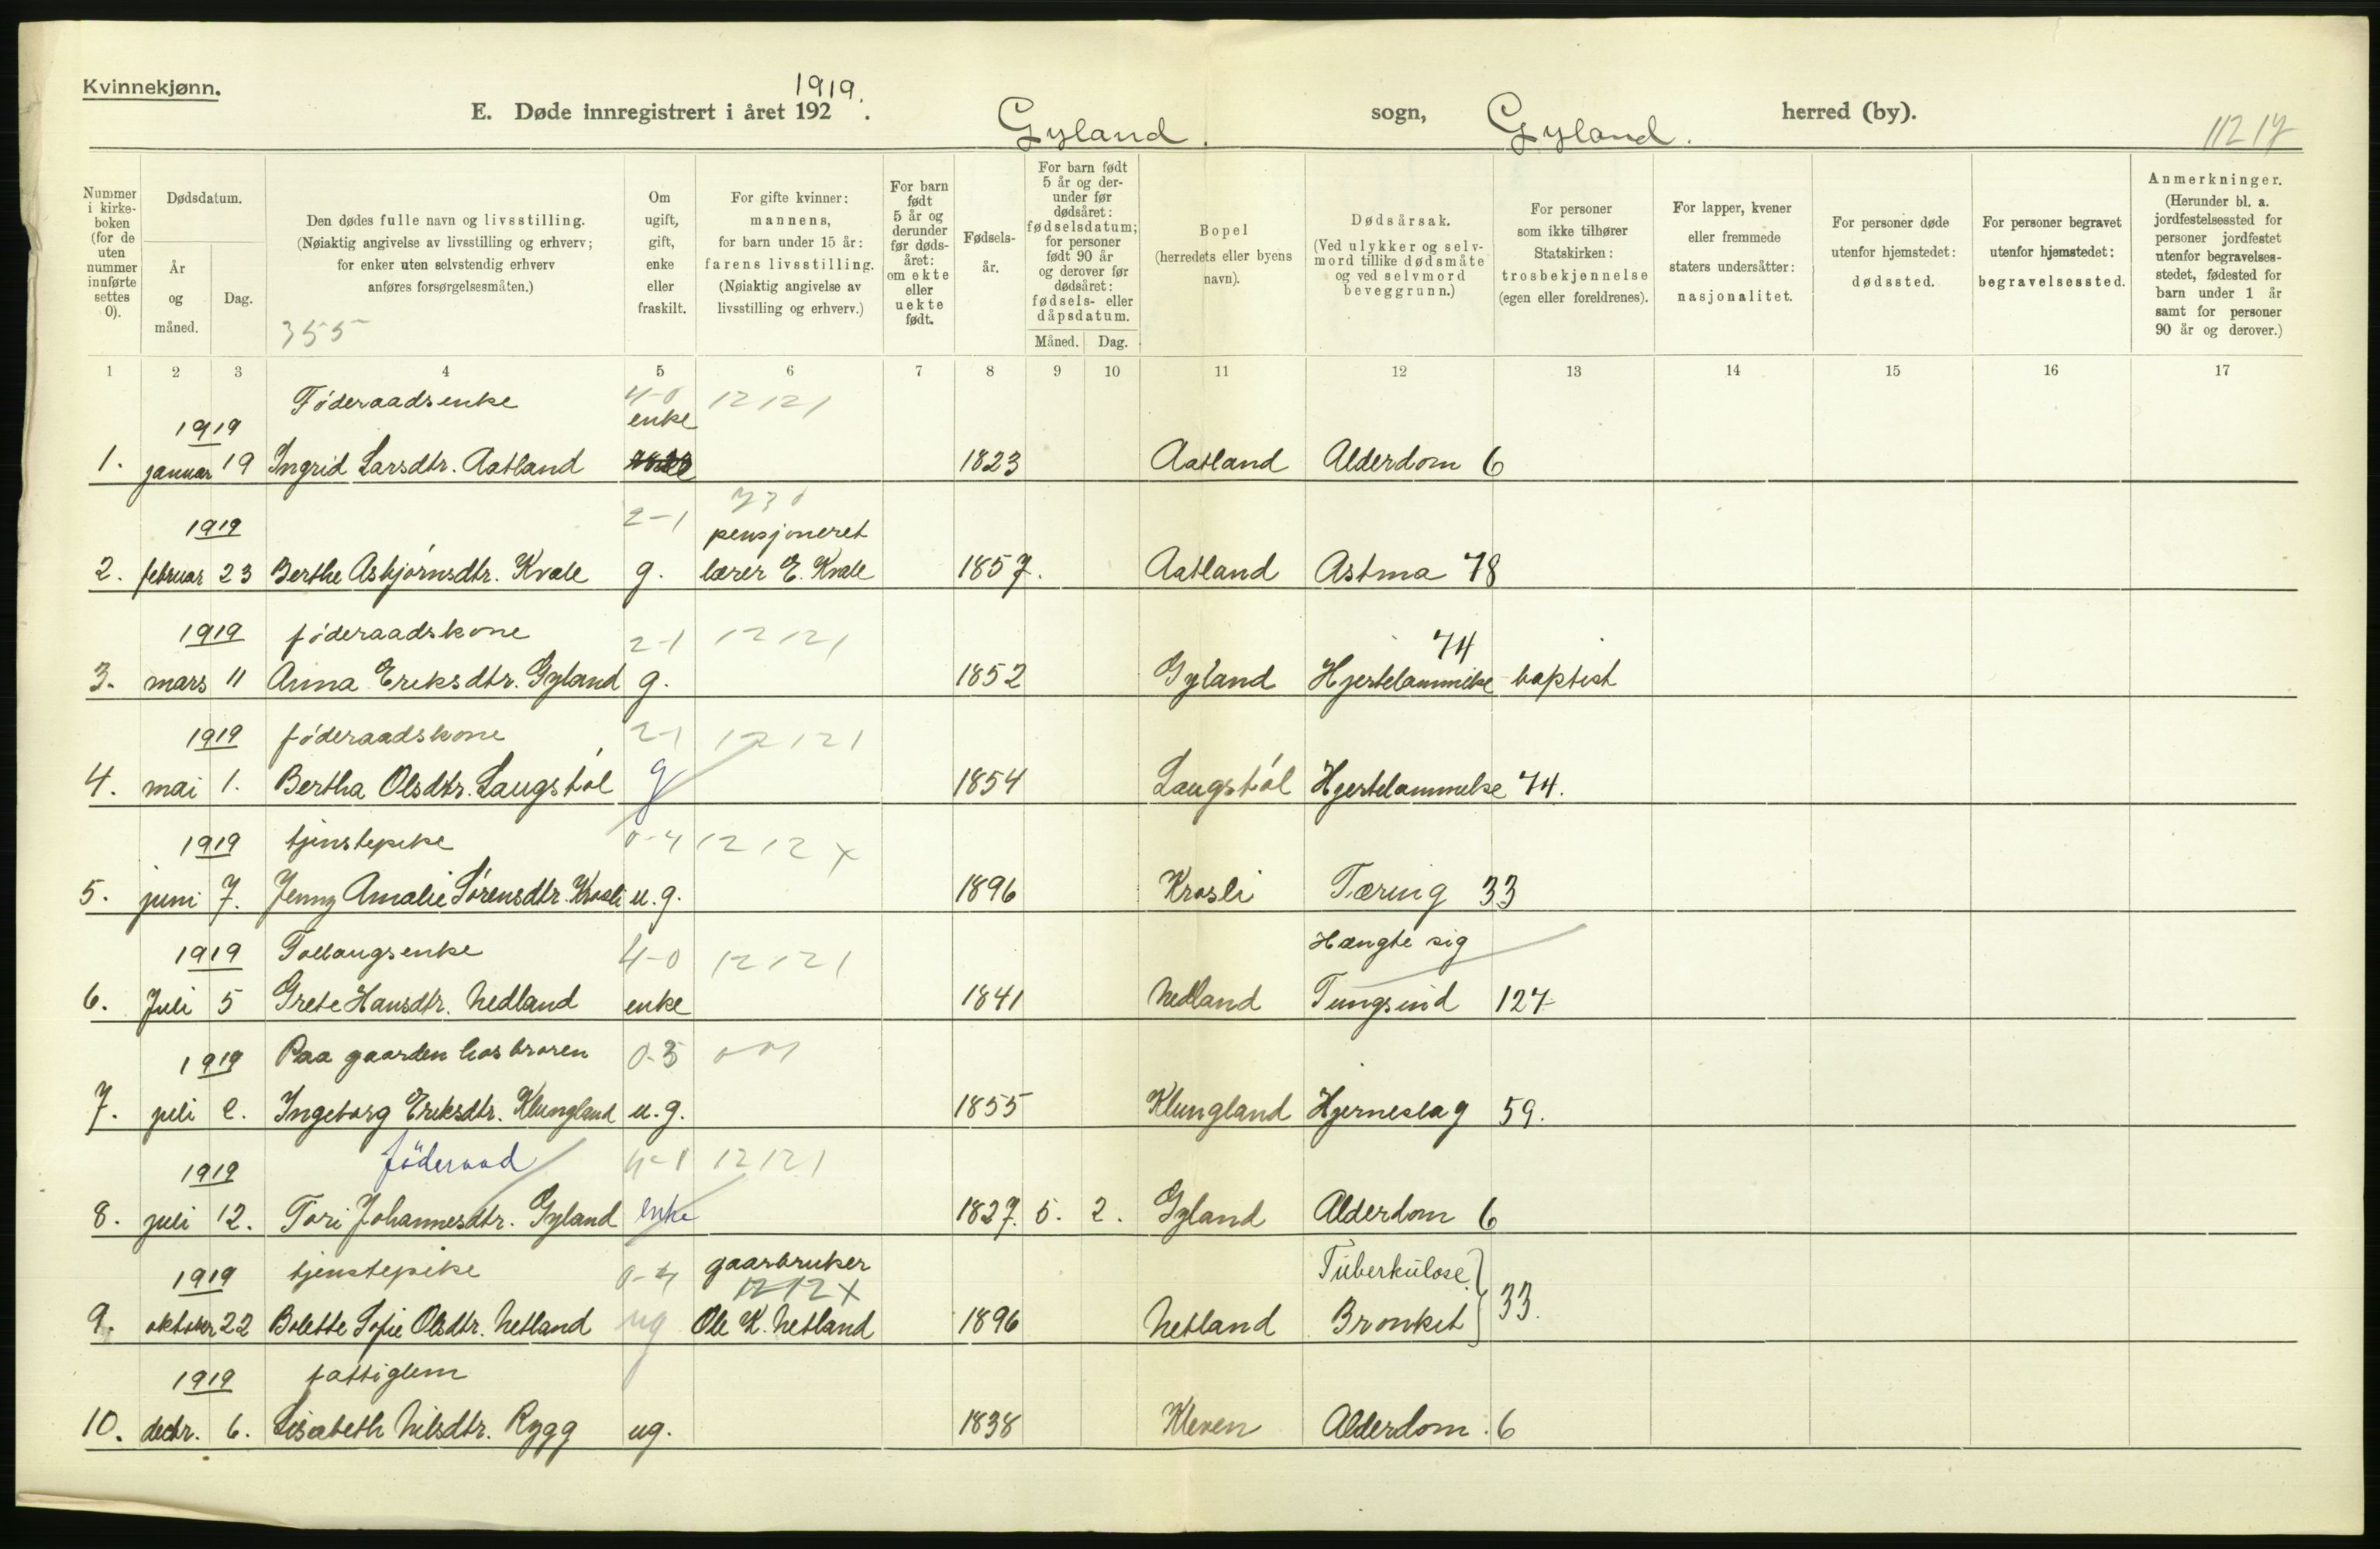 Kvinnekjønn.
1919.
E. Døde innregistrert i året 192 . Gyland. sogn, Gyland. herred (by).
11217
Nummer i kirke-boken (for de uten nummer innførte settes 0).
Dødsdatum.
År og måned.
Dag.
Den dødes fulle navn og livsstilling.
(Nøiaktig angivelse av livsstilling og erhverv;
for enker uten selvstendig erhverv
anføres forsørgelsesmåten.)
355
Om ugift, gift, enke eller fraskilt.
For gifte kvinner:
mannens,
for barn under 15 år:
farens livsstilling.
(Nøiaktig angivelse av
livsstilling og erhverv.)
For barn født 5 år og derunder før døds-året: om ekte eller uekte født.
Fødsels-år.
For barn født 5 år og der-under før dødsåret: fødselsdatum; for personer født 90 år og derover før dødsåret: fødsels- eller dåpsdatum.
Måned. Dag.
Bopel
(herredets eller byens
navn).
Dødsårsak.
(Ved ulykker og selv-
mord tillike dødsmåte
og ved selvmord
beveggrunn.)
For personer
som ikke tilhører
Statskirken:
trosbekjennelse
(egen eller foreldrenes).
For lapper, kvener
eller fremmede
staters undersåtter:
nasjonalitet.
For personer døde
utenfor hjemstedet:
dødssted.
For personer begravet
utenfor hjemstedet:
begravelsessted.
Anmerkninger.
(Herunder bl. a.
jordfestelsessted for
personer jordfestet
utenfor begravelses-
stedet, fødested for
barn under 1 år
samt for personer
90 år og derover.)
1 2 3 4 5 6 7 8 9 10 11 12 13 14 15 16 17
Føderaadsenke 4-0 12121
1919 enke
1. januar 19 Ingrid Larsdtr. Aatland 1823 Aatland Alderdom 6
730
1919 2-1 pensjoneret
2. februar 23 Berthe Asbjørnsdtr. Kvale g. lærer E. Kvale 1857. Aatland Astma 78
1919 føderaadskone 2-1 12121 74
3. mars 11 Anna Eriksdtr. Gyland g. 1852 Gyland Hjertelammelse baptist
1919 føderaadskone 2-1 12121
4. mai 1. Bertha Olsdtr. Laugstøl g 1854 Laugstøl Hjertelammelse 74.
1919 tjenstepike 0-4 1212 x
5. juni 7. Jenny Amalie Sørensdtr. Krosli u.g. 1896 Krosli Tæring 33
1919 4-0 12121 Hængte sig
6. Juli 5 Grete Hansdtr. Nedland enke 1841 Nedland Tungsind 127
1919 Paa gaarden hos broren 0-3
7. juli Ingeborg Eriksdtr. Klungland u.g. 1855 Klungland Hjerneslag 59.
1919 föderaad 4-1 12121
8. juli 12. Tori Johannesdtr. Gyland enke 1827. 5. 2. Gyland Alderdom 6
1919 tjenstepike 0-4 gaarbruker Tüberkülose
1212 x
9. oktober 22 Bolette Sofie Olsdtr. Netland ug Ole K. Netland 1896 Netland Bronkit 33.
1919 fattiglem
10. decbr. 6. Lisabeth Nilsdtr. Rygg ug. 1838 Kleven Alderdom. 6